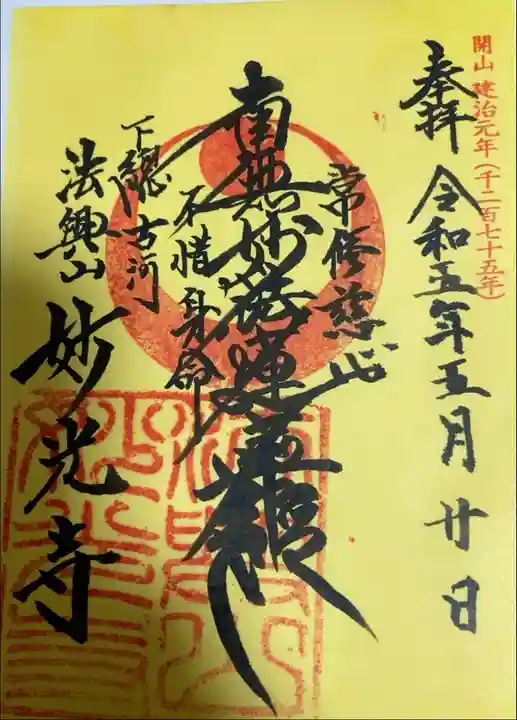 開山 建治元年(千二百七十五年)
奉拝 令和五年五月廿日
常修慈悲
南無妙法蓮華經
不惜身命
下総古河
法興山 妙光寺